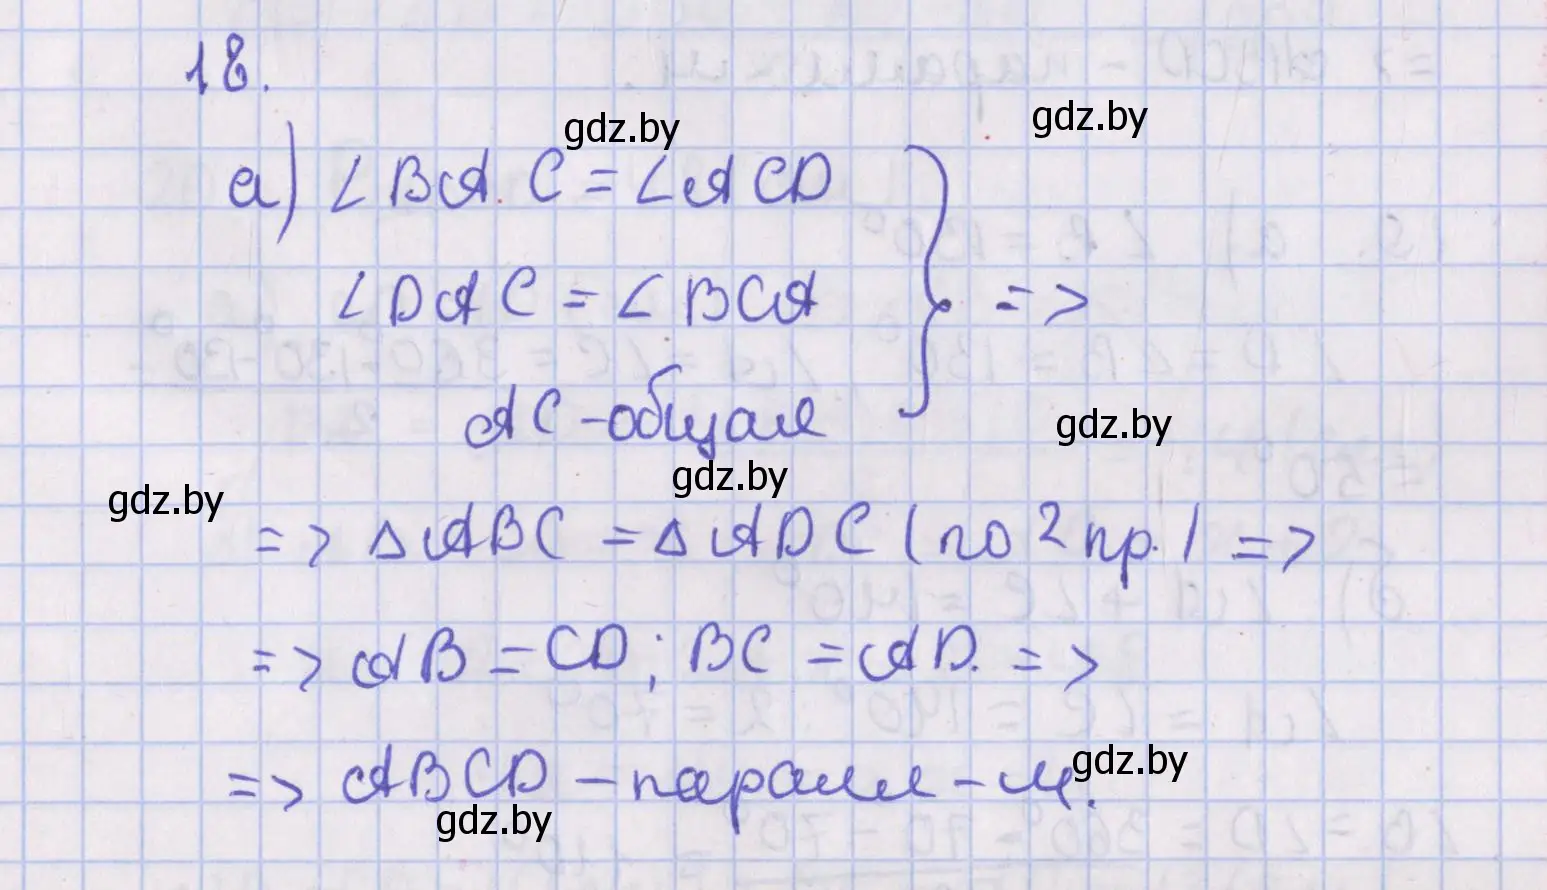 18.
gdz.by
gdz.by
а) ∠BAC = ∠ACD
∠DAC = ∠BCA } =>
AC - общая
gdz.by
gdz.by
gdz.by
=> △ABC = △ADC (по 2 пр.) =>
=> AB = CD; BC = AD. =>
=> ABCD - паралл-м.
gdz.by
gdz.by